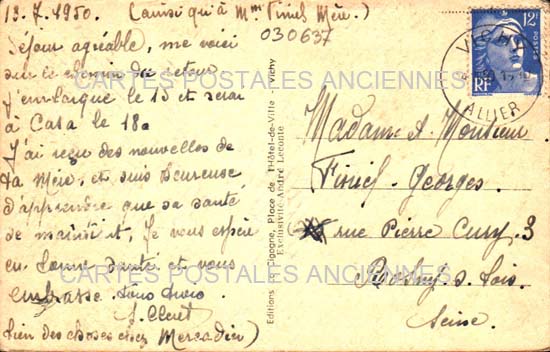 13.7.1950. (ainsi qu'à Mme Finiel Mère.)
030637
Séjour agréable, me voici
sur le chemin du retour
J'embarque le 15 et serai
à Casa le 18.
J'ai reçu des nouvelles de
ta Mère, et suis heureuse
d'apprendre que sa santé
se maintient, Je vous espère
en bonne santé et vous
embrasse tous trois
(bien des choses chez Mercadier)
Editions La Cigogne, Place de l'Hôtel-de-Ville - Vichy
Exclusivité André Leconte
VICHY
ALLIER
12F
POSTES
RF
Madame et Monsieur
Finiel Georges
rue Pierre Cury. 3
Rosny s. bois
Seine.
CARTES POSTALES ANCIENNES
CARTES POSTALES ANCIENNES
CARTES POSTALES ANCIENNES